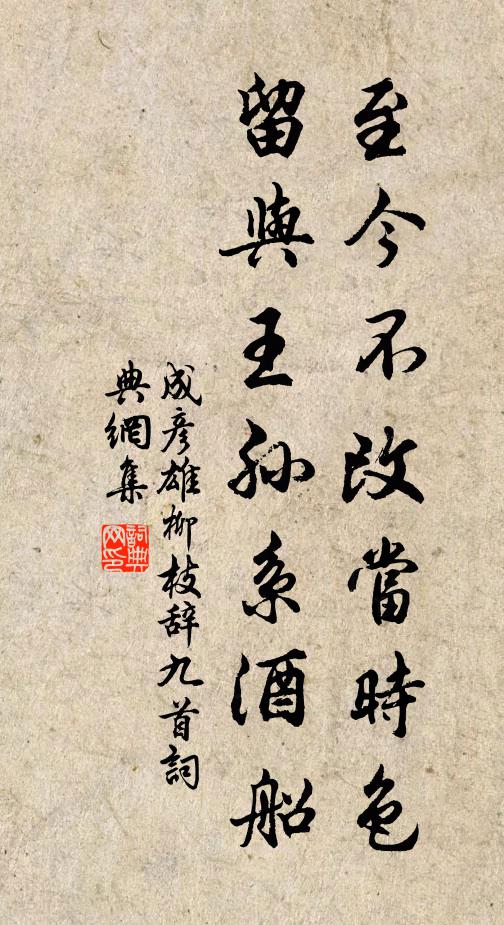 至今不改當時色
留與王孫系酒船
成彦雄柳枝辞九首詞
典網集
詞典
网印